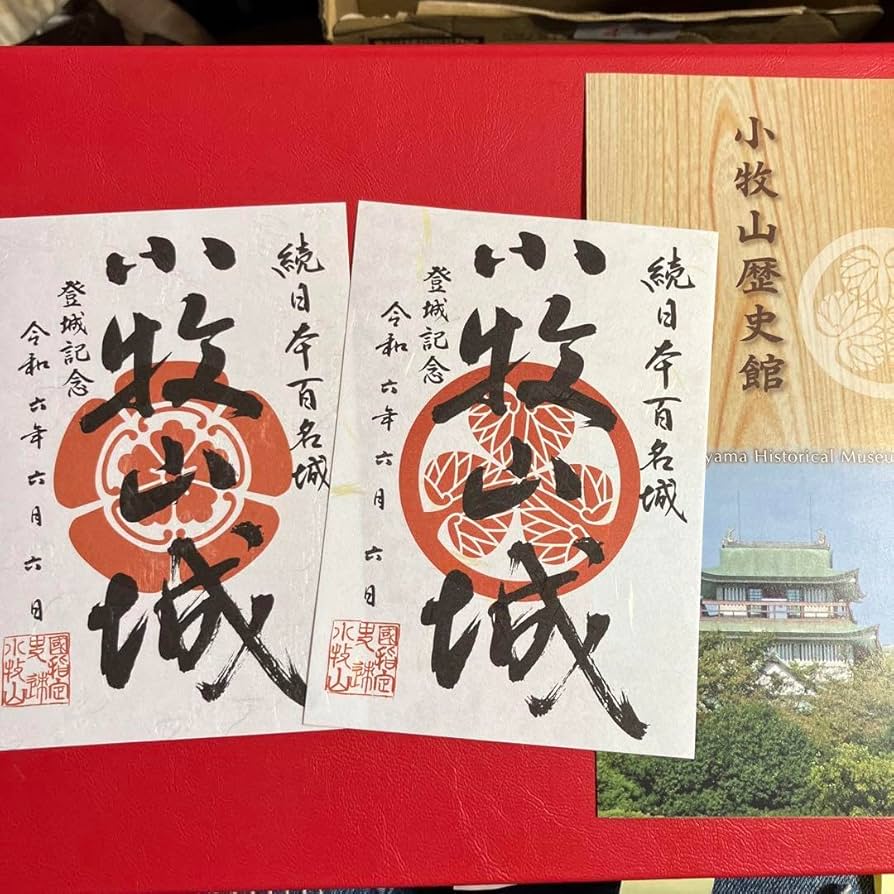 続日本百名城
小牧山城
登城記念
令和六年六月六日
國指定
史跡
小牧山
続日本百名城
小牧山城
登城記念
令和六年六月六日
國指定
史跡
小牧山
小牧山歴史館
yama Historical Museu